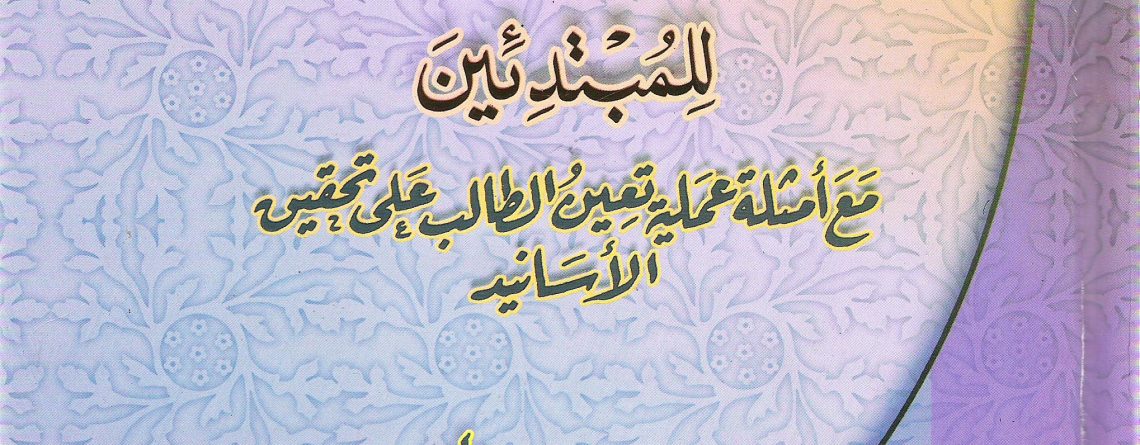 لِلمُبْتَدِئِينَ
مَعَ أمثلة عَملية تعينُ الطالب عَلى تحقيق
الأسَانيد